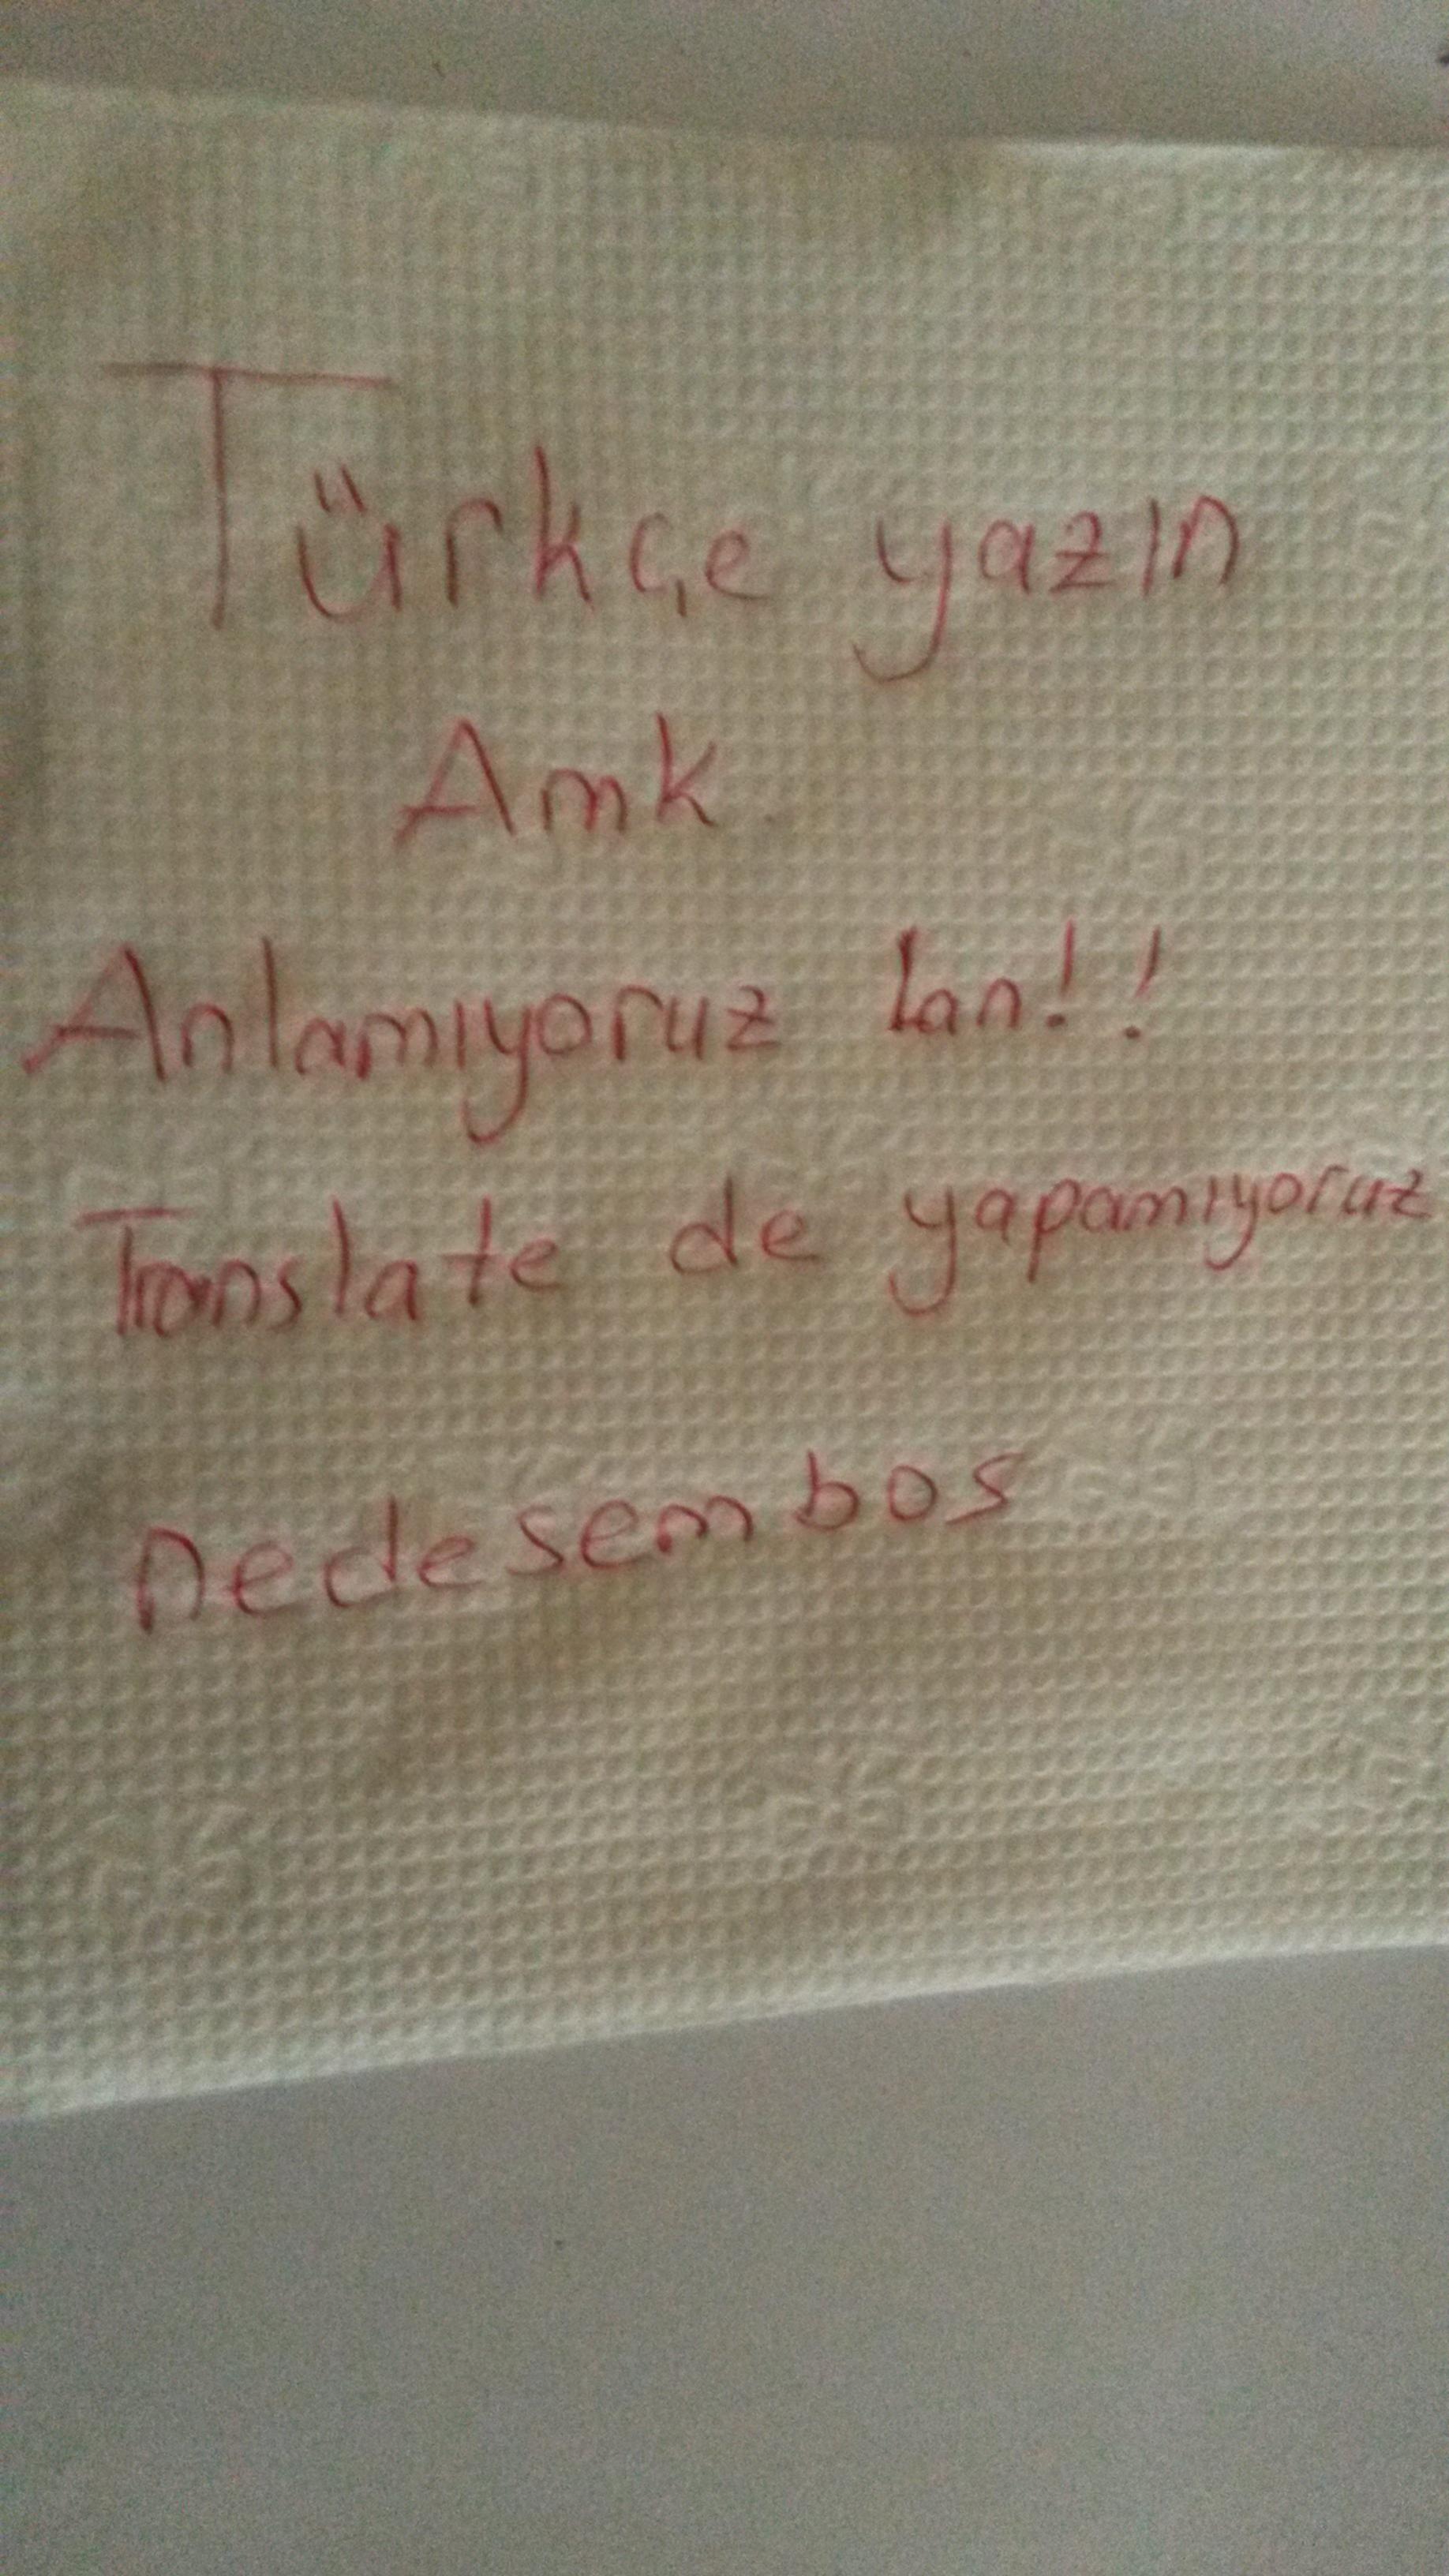 Türkçe yazın
Amk
Anlamıyoruz lan!!
Translate de yapamıyoruz
Dedesem bos